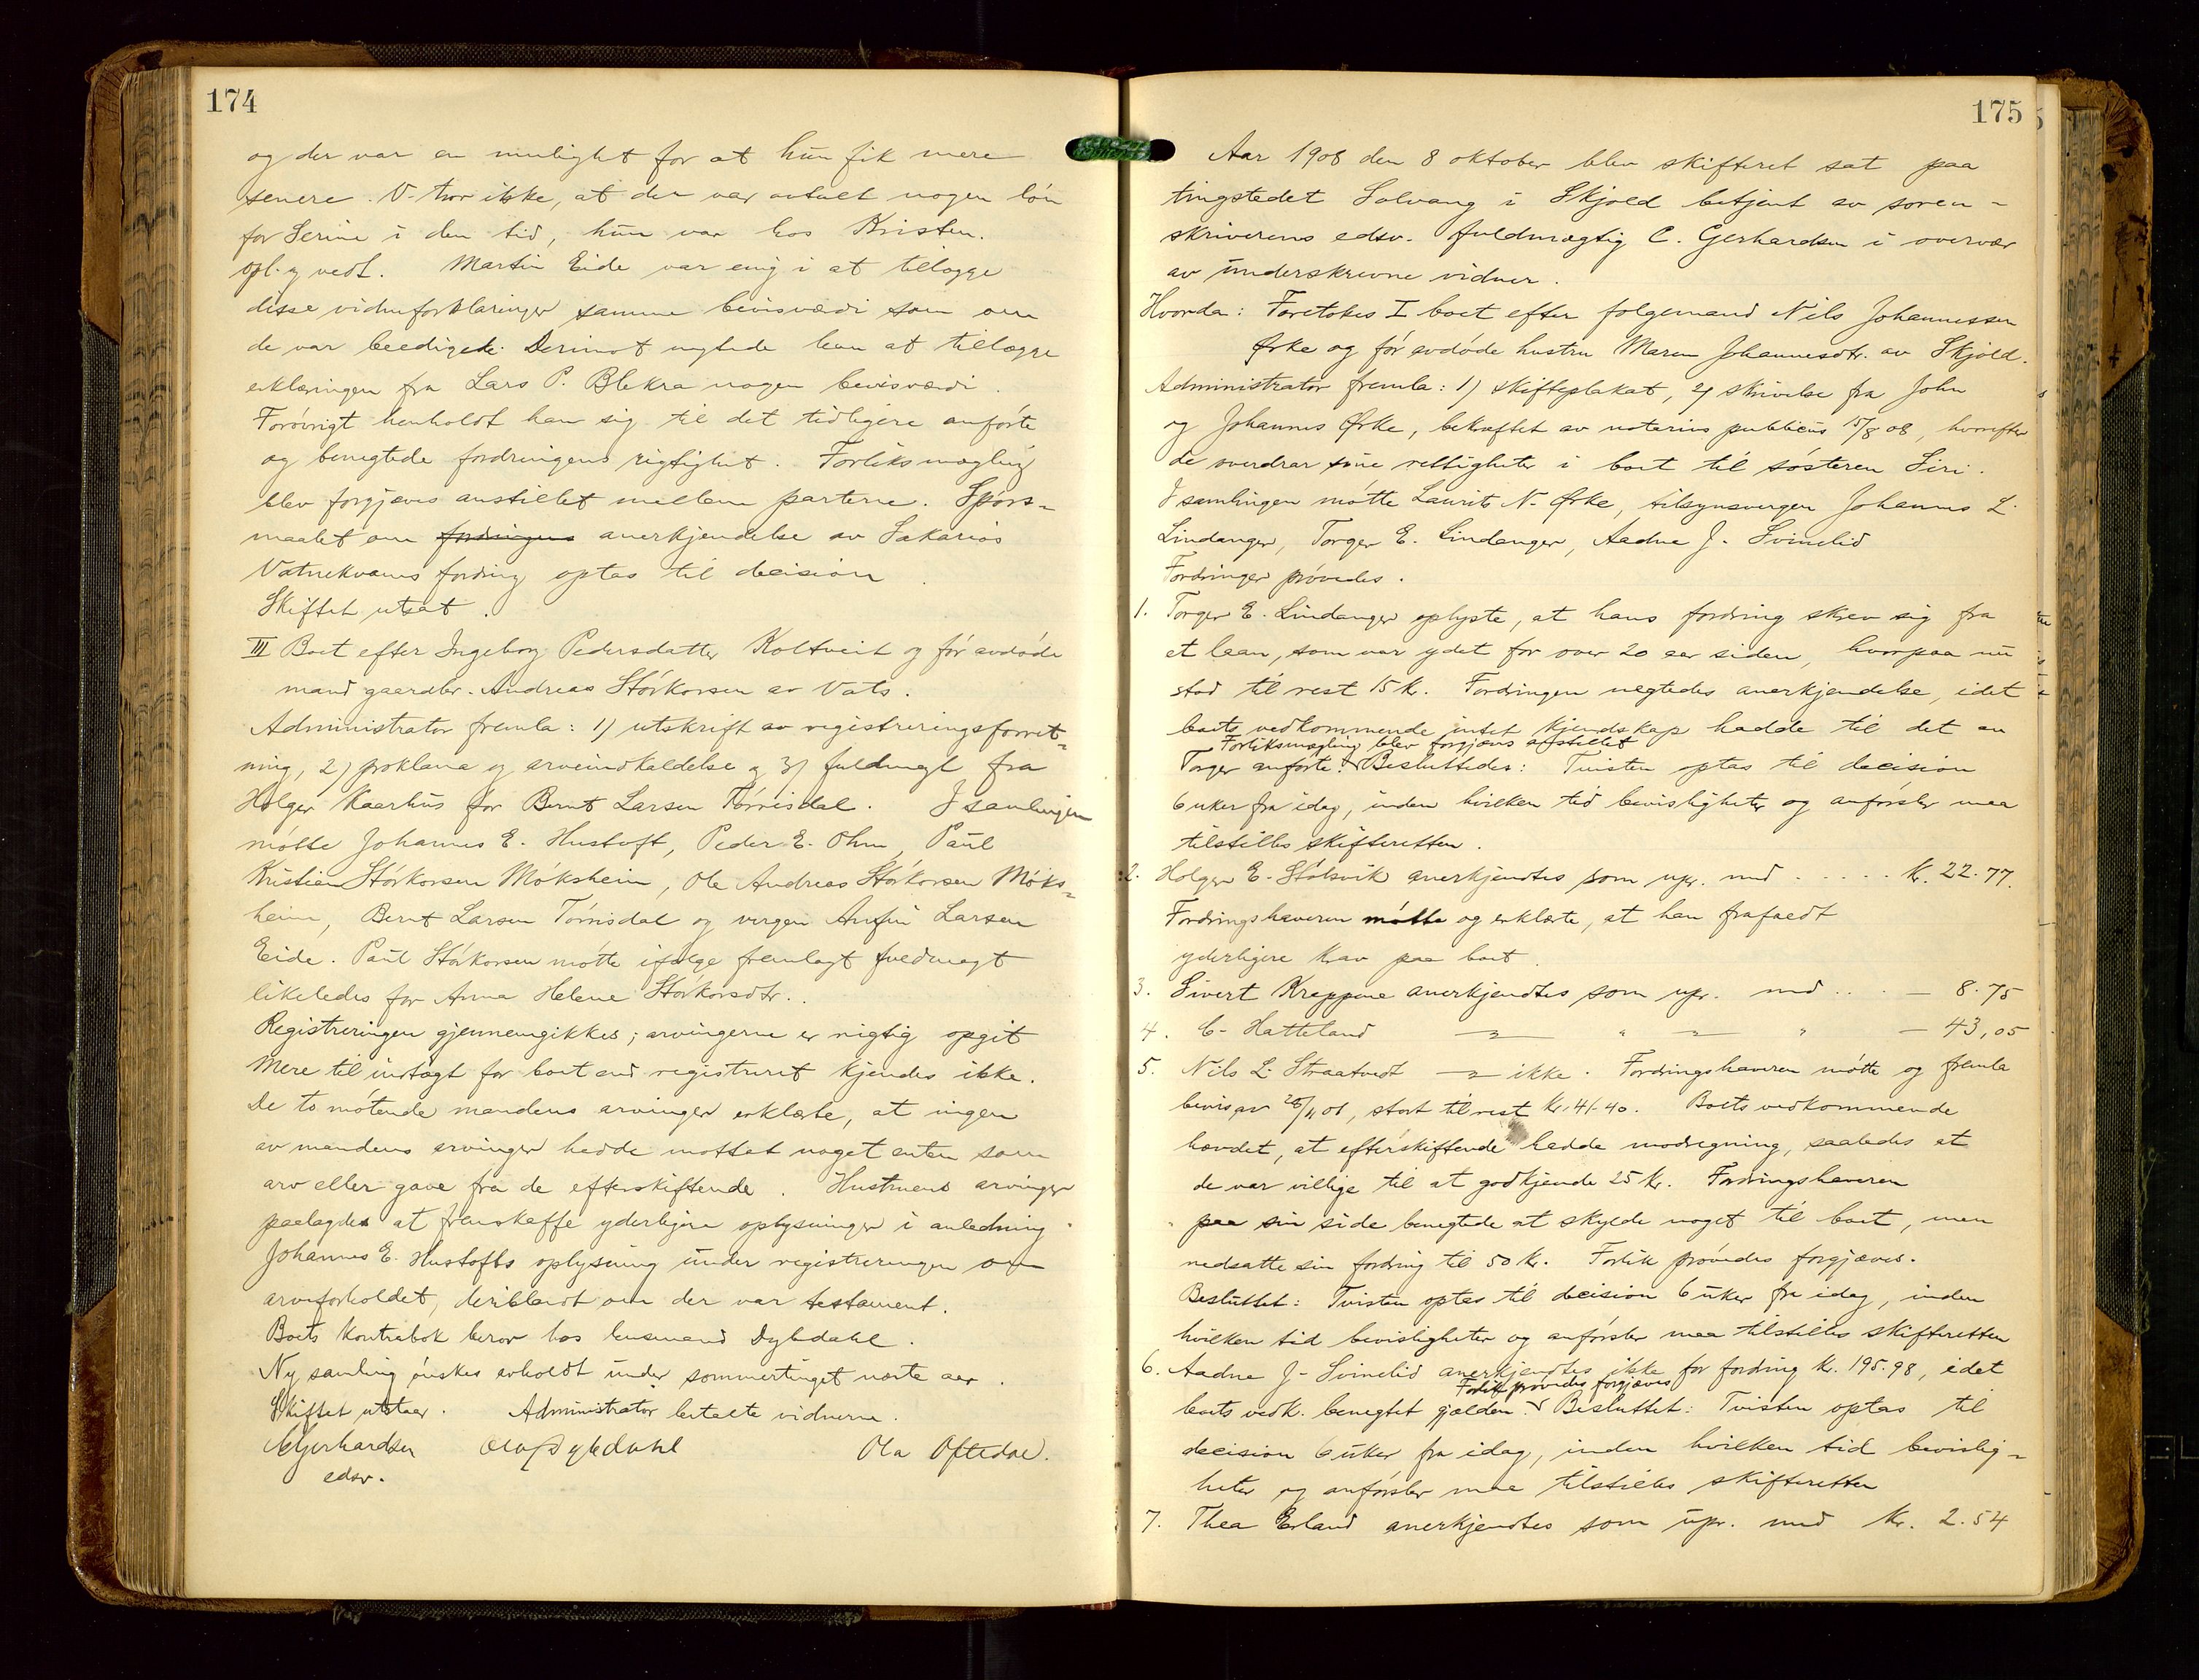 174
og der var en mulighet for at hun fik mere
senere. V. tror ikke, at der var avtalt nogen løn
for Serine i den tid, hun var hos Kristen.
Opl. g vedt. Martin Eide var enig i at tillægge
disse vidneforklaringer samme bevisværdi som om
de var beedigede. Derimot negtede han at tillægge
erklæringen fra Lars P. Blekra nogen bevisværdi.
Forøvrigt henholdt han sig til det tidligere anførte
og benegtede fordringens rigtighet. Forliksmægling
blev forgjæves anstillet mellem parterne. Spørs-
maalet om fordringens anerkjendelse av Sakarias
Vatnekvams fordring optas til decision.
Skiftet utsat.
III Boet efter Ingeborg Pedersdatter Koltveit og før avdøde
mand gaardbr. Andreas Størkorsen av Vats.
Administrator fremla: 1) utskrift av registreringsforret-
ning, 2) proklama og arveindkaldelse og 3) fuldmagt fra
Holger Kaarhus for Bernt Larsen Tørrisdal. I samlingen
møtte Johannes E. Hustoft, Peder E. Ohm, Paul
Kristian Størkorsen Møksheim, Ole Andreas Størkorsen Møks-
heim, Bernt Larsen Tørrisdal og vergen Anfin Larsen
Eide. Paul Størkorsen møtte ifølge fremlagt fuldmagt
likeledes for Anna Helene Størkorsdtr..
Registreringen gjennemgikkes; arvingerne er rigtig opgit
Mere til indtægt for boet end registreret kjendes ikke.
De to møtende mandens arvinger erklærte, at ingen
av mandens arvinger hadde mottat noget enten som
arv eller gave fra de efterskiftende. Hustruens arvinger
paalagdes at fremskaffe yderligere oplysninger i anledning
Johannes E. Hustofts oplysning under registreringen om
arveforholdet, deriblandt om der var testament.
Boets kontrabok beror hos lensmand Dybdahl.
Ny samling ønskes avholdt under sommertinget næste aar.
Skiftet utstaar. Administrator betalte vidnerne.
C Gerhardsen Olaf Dybdahl Ola Oftedal.
edsv.
175
Aar 1908 den 8 oktober blev skifteret sat paa
tingstedet Solvang i Skjold betjent av soren-
skriverens edsv. fuldmægtig C. Gerhardsen i overvær
av underskrevne vidner.
Hvorda: Foretokes I boet efter følgemand Nils Johannessen
Ørke og før avdøde hustru Maren Johannesdtr. av Skjold.
Administrator fremla: 1) skifteplakat, 2) skrivelse fra John
og Johannes Ørke, bekræftet av notarius publicus 15/8 08, hvorefter
de overdrar sine rettigheter i boet til søsteren Siri.
I samlingen møtte Laurits N. Ørke, tilsynsvergen Johannes L.
Lindanger, Torger E. Lindanger, Aadne J. Svinelid
Fordringer prøvedes.
1. Torger E. Lindanger oplyste, at hans fordring skrev sig fra
et laan, som var ydet for over 20 aar siden, hvorpaa nu
stod til rest 15 kr. Fordringen negtedes anerkjendelse, idet
boets vedkommende intet kjendskap hadde til det av
Forliksmægling blev forgjæves anstillet
Torger anførte. Besluttedes: Tvisten optas til decision
6 uker fra idag, inden hvilken tid bevisligheter og anførsler maa
tilstilles skifteretten.
2. Holger E. Stølsvik anerkjendtes som upr. med ..... kr. 22.77.
Fordringshaveren møtte og erklærte, at han frafaldt
yderligere krav paa boet.
3. Sivert Kreppene anerkjendtes som upr. med ... — 8.75
4. C. Hatteland — " — " — " — 43,05
5. Nils L. Straatveit — " — ikke. Fordringshaveren møtte og fremla
bevis av 28/11 01, stort til rest kr. 141.40. Boets vedkommende
hævdet, at efterskiftende hadde modregning, saaledes at
de var villige til at godkjende 25 kr. Fordringshaveren
paa sin side benegtede at skylde noget til boet, men
nedsatte sin fordring til 50 kr. Forlik prøvedes forgjæves.
Besluttet: Tvisten optas til decision 6 uker fra idag, inden
hvilken tid bevisligheter og anførsler maa tilstilles skifteretten
6. Aadne J. Svinelid anerkjendtes ikke for fordring kr. 195.98, idet
Forlik prøvedes forgjæves
boets vedk. benegtet gjælden. Besluttet: Tvisten optas til
decision 6 uker fra idag, inden hvilken tid bevislig-
heter og anførsler maa tilstilles skifteretten
7. Thea Erland anerkjendtes som upr. med kr. 2.54